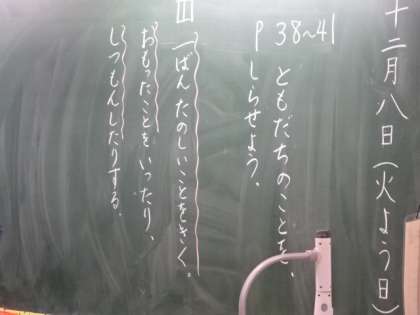 十二月八日(火よう日)
P38~41
ともだちのことを、
しらせよう。
一ばんたのしいことをきく。
おもったことをいったり、
しつもんしたりする。